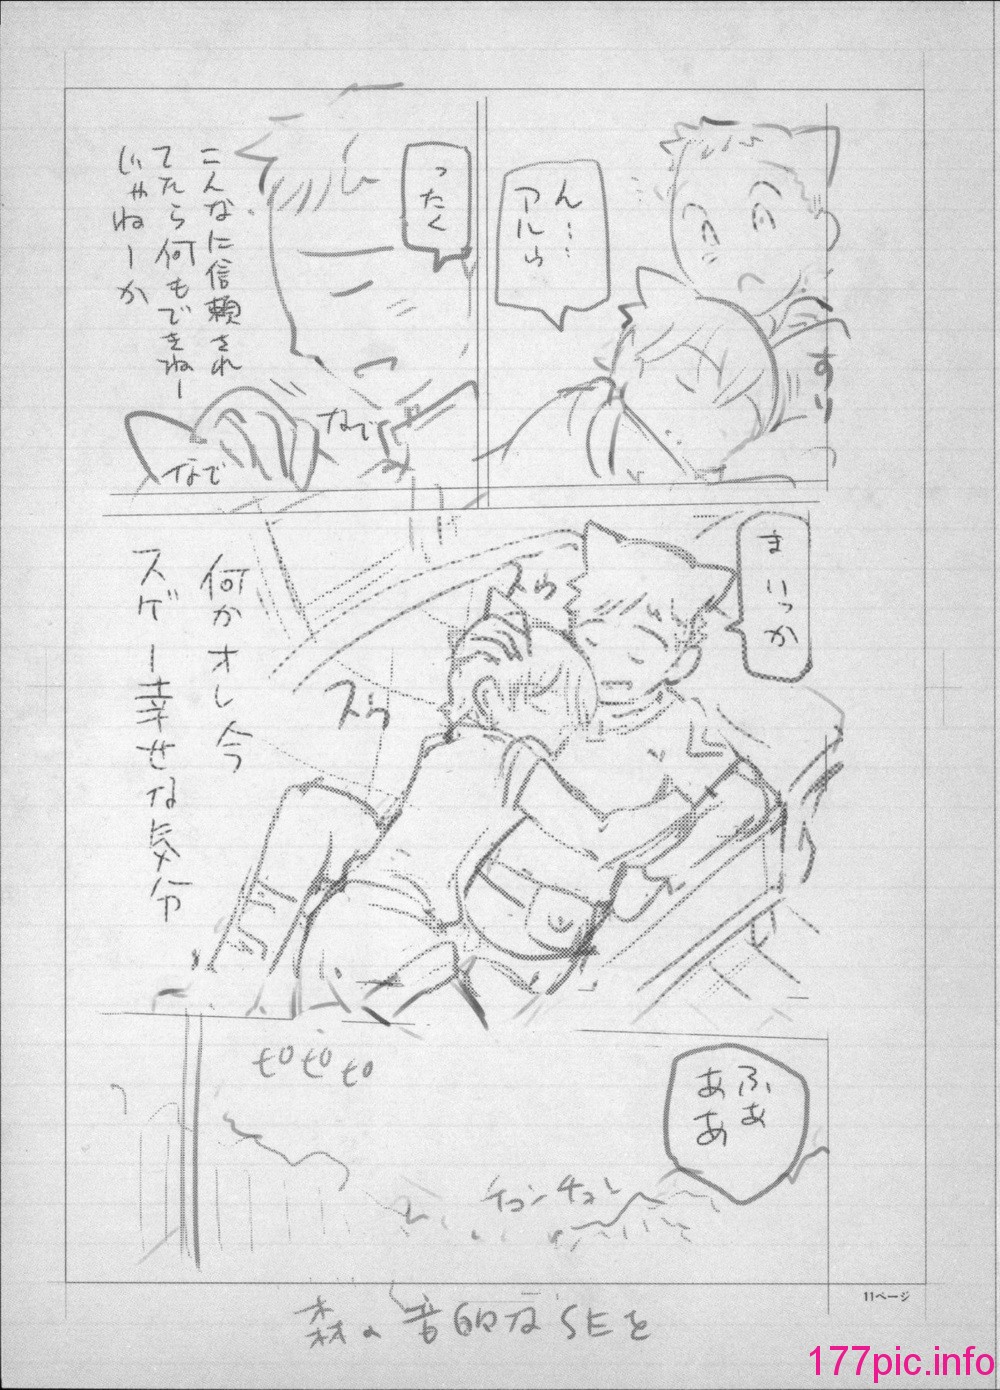 ん……
アルゥ
すり
ったく
こんなに信頼され
てたら何もできねー
じゃねーか
なで
なで
まいっか
スゥ
スゥ
何かオレ今
スゲー幸せな気分
ふぁ
ああ
ピピピ
チュンチュン
11ページ
森の音的なSEを
177pic.info